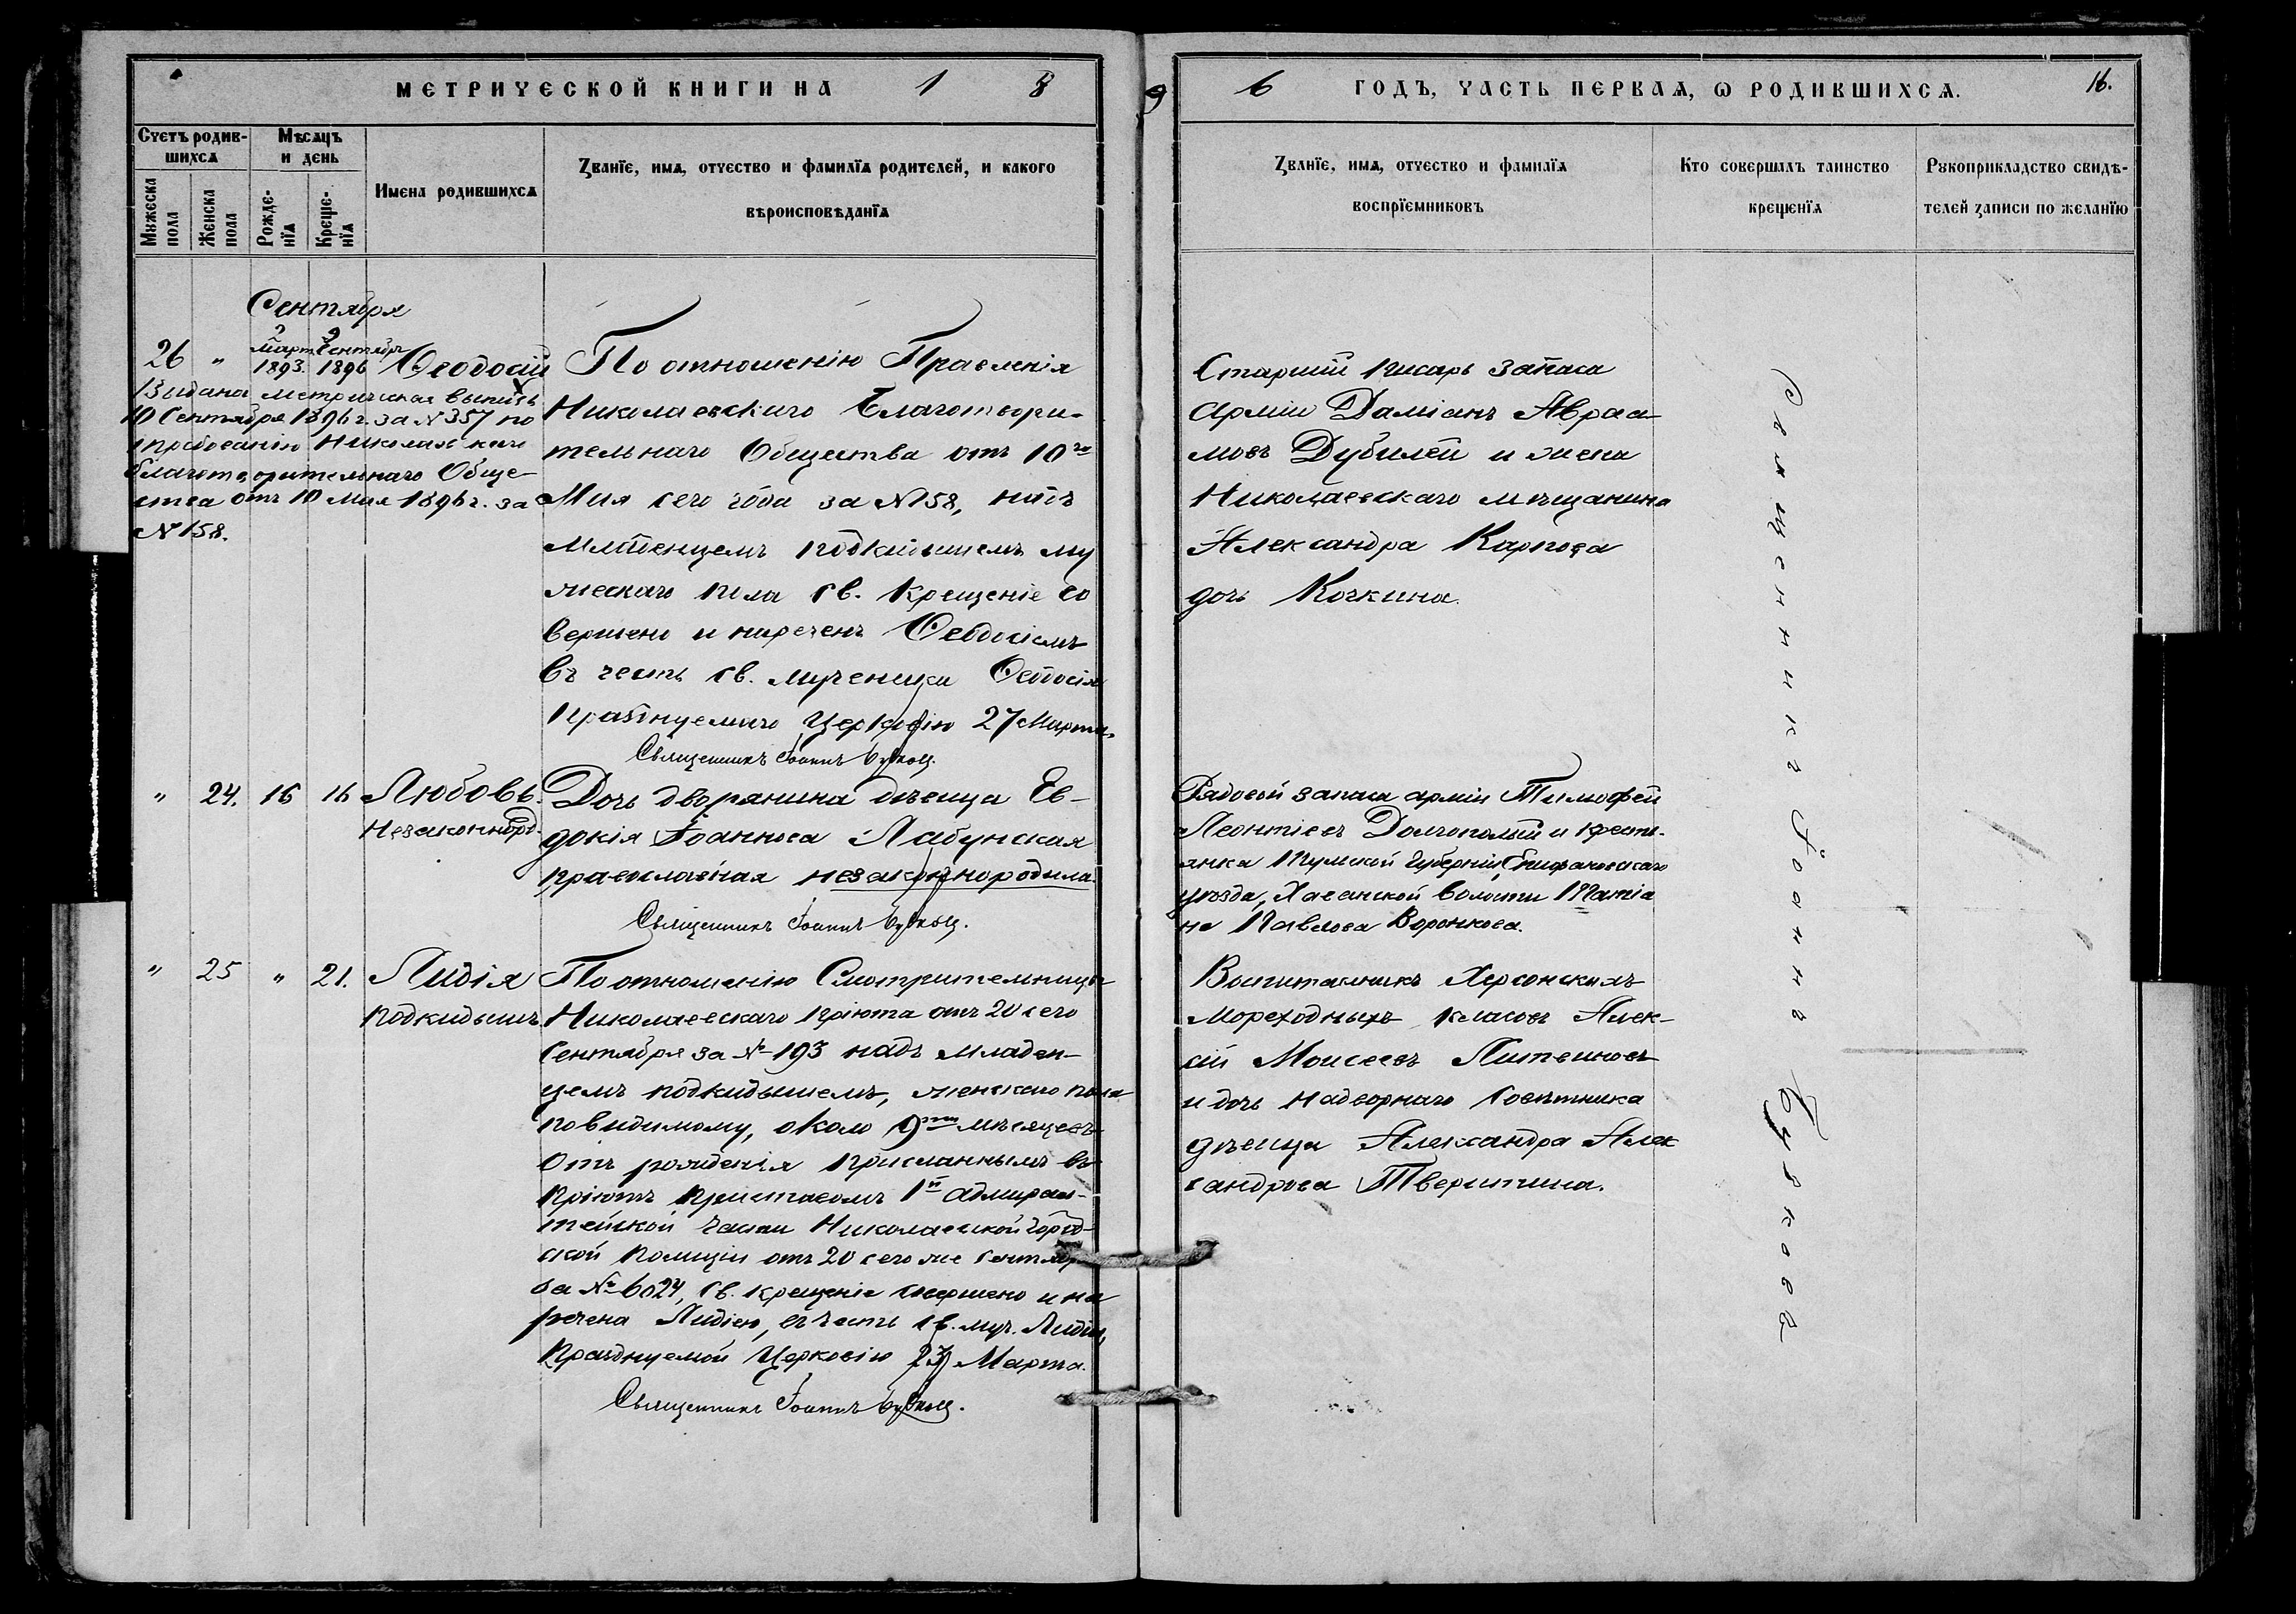 МЕТРИЧЕСКОЙ КНИГИ НА 1 8
9 6 ГОДЪ, ЧАСТЬ ПЕРВАѦ, Ѡ РОДИВШИХСѦ. 16.
Счетъ родив-
шихсѧ
Мѣсѧцъ
и день
Мужеска
пола
Женска
пола
Рожде-
нїѧ
Креще-
нїѧ
Имена родившихсѧ
Званїе, имѧ, отчество и фамилїѧ родителей, и какого
вѣроисповѣданїѧ
Званїе, имѧ, отчество и фамилїѧ
воспрїемниковъ
Кто совершалъ таинство
крещенїѧ
Рукоприкладство свидѣ-
телей записи по желанїю
Сентября
26 " Март. 1893. 9 Сентябрь 1896 Ѳеодосій
Выдана метрическая выпись
10 Сентября 1896 г. за N 357 по
требованію Николаевскаго
благотворительнаго Обще-
ства отъ 10 Мая 1896 г. за
N 158.
По отношенію Правленія
Николаевскаго Благотвори-
тельнаго Общества отъ 10го
Мая сего года за N 158, надъ
младенцемъ подкидышемъ му
жескаго пола св. Крещеніе со
вершено и нареченъ Ѳеодосіемъ
въ честь св. мученика Ѳеодосія
празднуемаго Церковію 27 Марта.
Священникъ Іоаннъ
Старшій писарь запаса
арміи Даміанъ Авраа-
мовъ Дубилей и жена
Николаевскаго мѣщанина
Александра Карпова
дочь Кочкина.
" 24. 16 16 Любовь.
Незаконнорд.
Дочь дворянина дѣвица Ев-
докія Іоаннова Лабунская
православная незаконнородила.
Священникъ Іоаннъ
Рядовой запаса арміи Тимофей
Леонтіевъ Долгополый и крестьянка
Тульской губерніи, Епифановскаго
уѣзда, волости Татіа
на Павлова Воронкова.
" 25 " 21. Лидія
подкидышъ.
По отношенію Смотрительницы
Николаевскаго пріюта отъ 20 сего
Сентября за № 193 надъ младен-
цемъ подкидышемъ, женскаго пола
повидимому, около 9ти мѣсяцевъ
отъ рожденія присланнымъ въ
пріютъ приставомъ 1й адмирал-
тейской части Николаевской город-
ской полиціи отъ 20 сего же Сентября
за № 6024, св. крещеніе совершено и на
речена Лидіею, въ честь св. муч. Лидіи,
празднуемой Церковію 23 Марта.
Священникъ Іоаннъ
Воспитанникъ Херсонскихъ
мореходныхъ класовъ Алек-
сій Моисеевъ Литвиновъ
и дочь Надворнаго Совѣтника
дѣвица Александра Алек
сандрова Тверитина.
Священникъ Іоаннъ